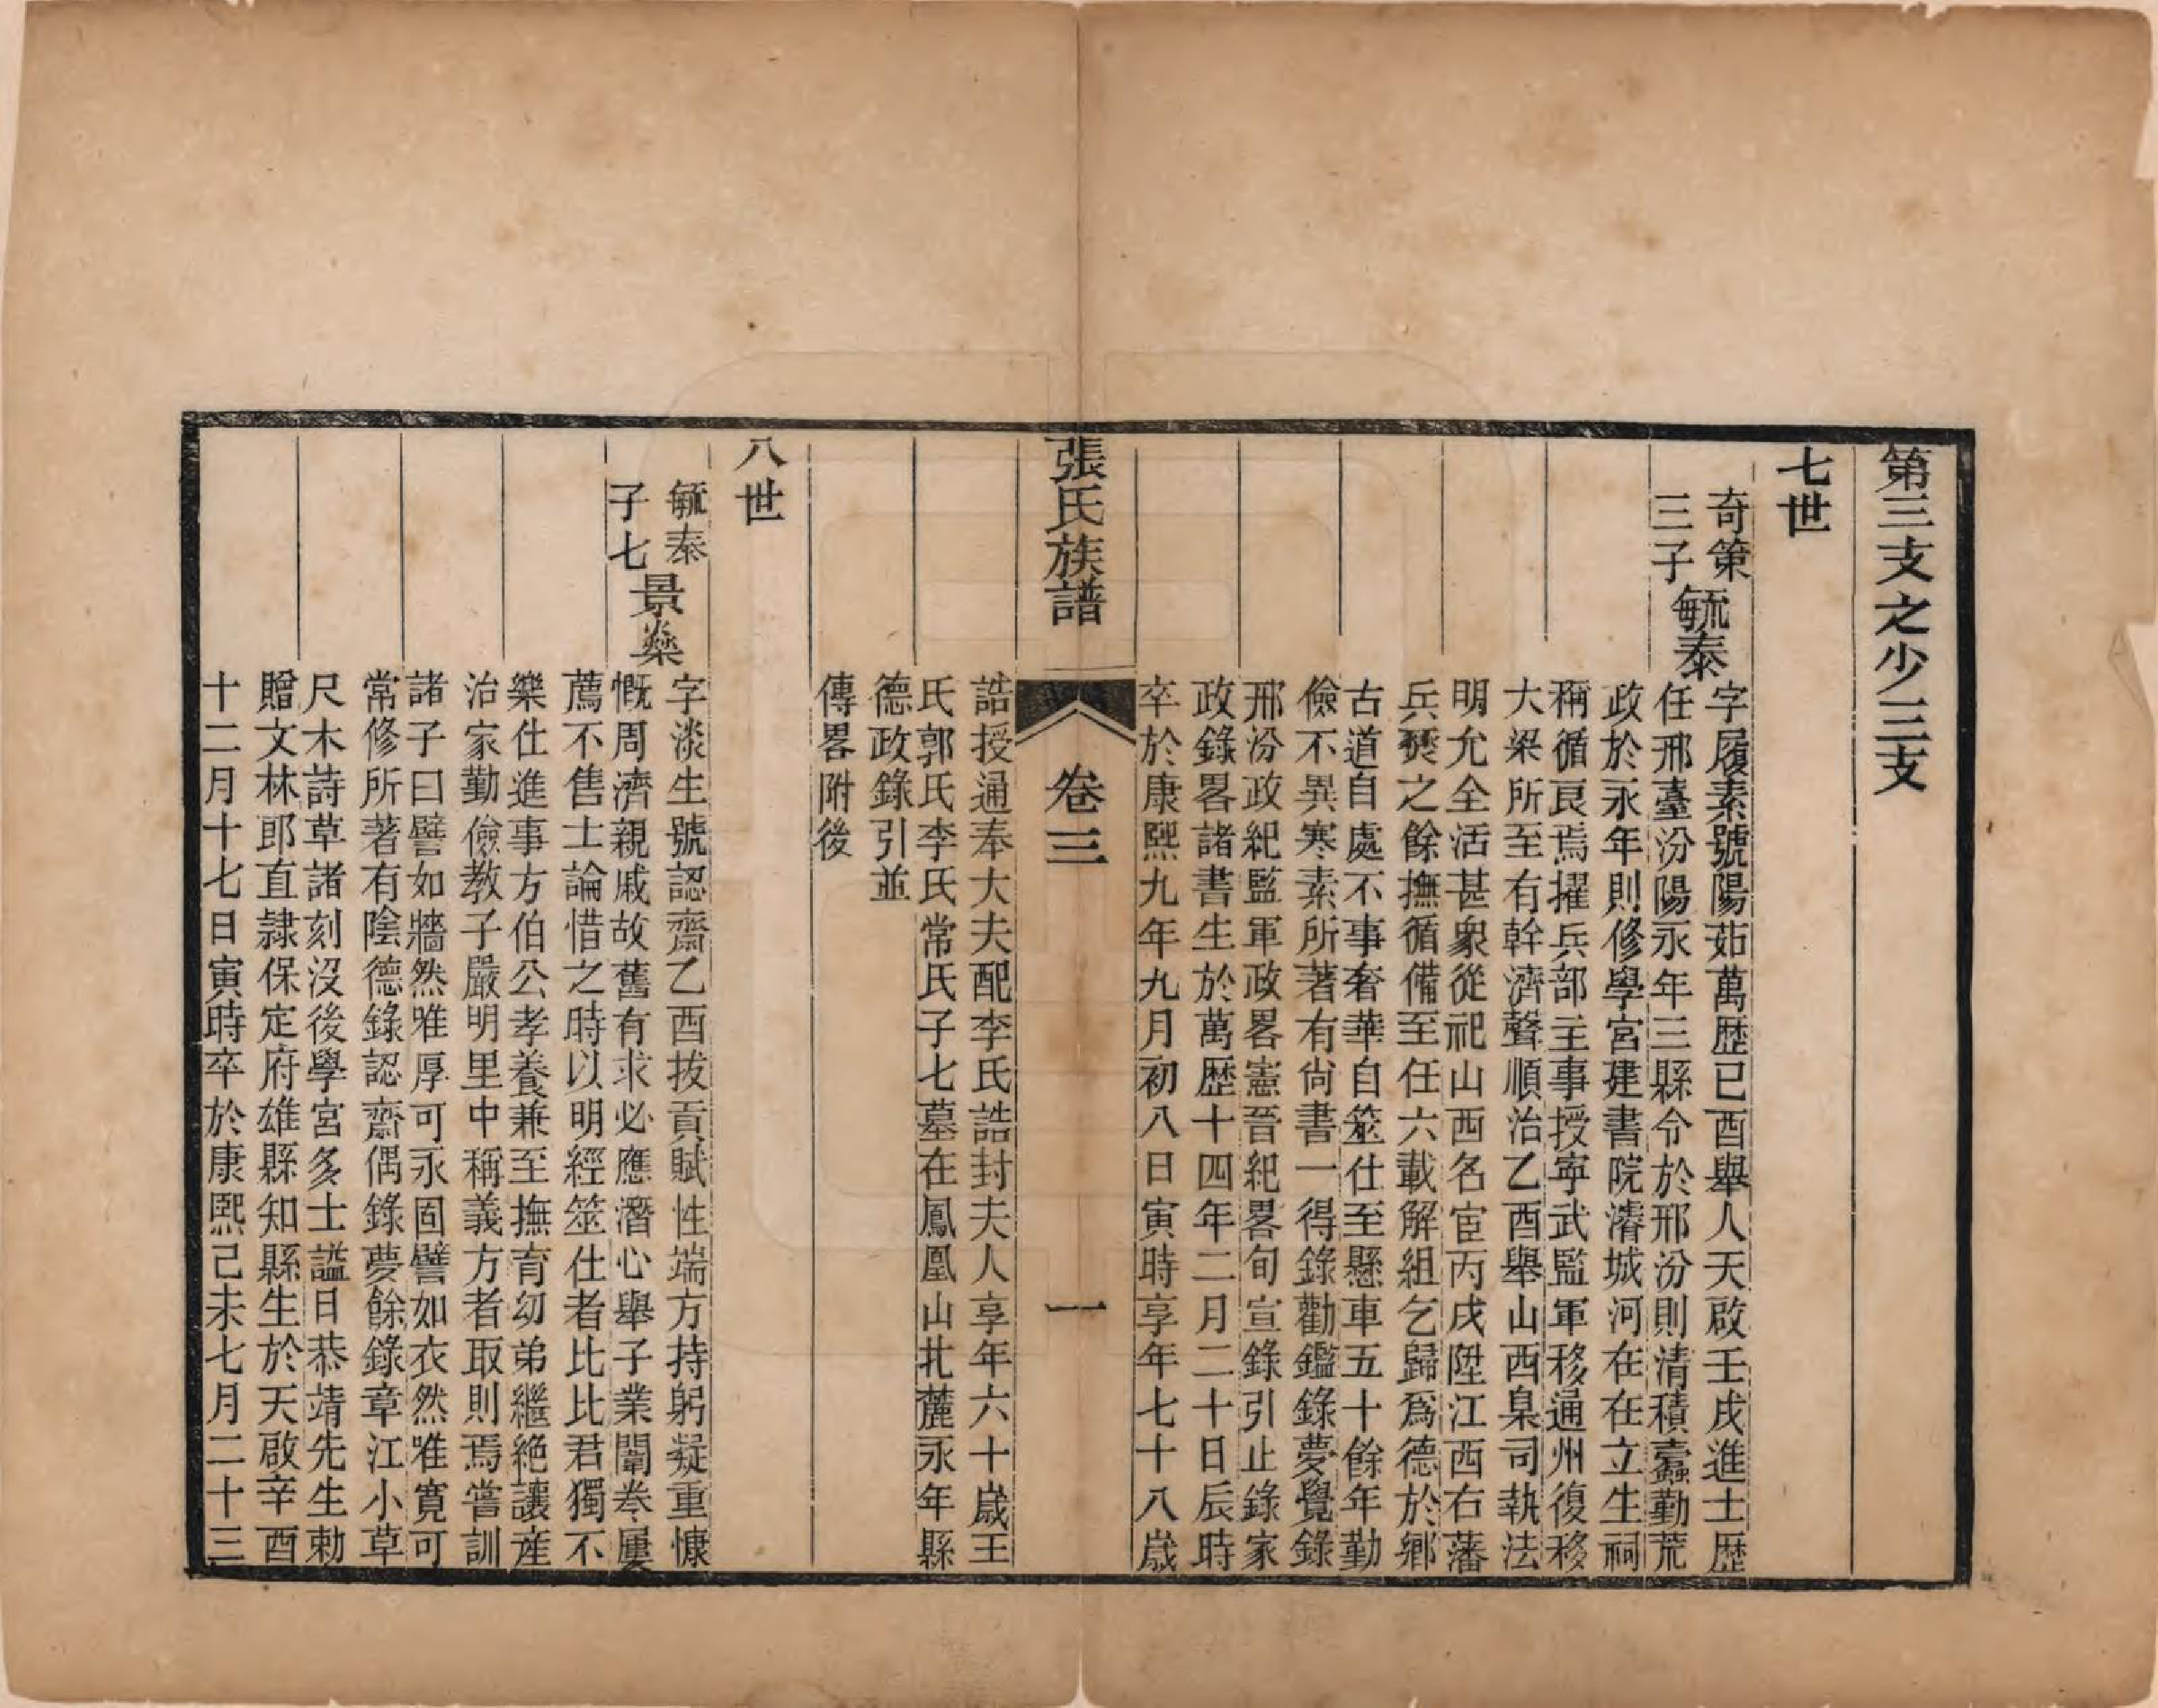 第三支之少三支
七世
奇策
三子
毓泰
字履素號陽茹萬歴已酉舉人天啟壬戌進士歴
任邢臺汾陽永年三縣令於邢汾則清積蠹勤荒
政於永年則修學宮建書院濬城河在在立生祠
稱循良焉擢兵部主事授寧武監軍移通州復移
大梁所至有幹濟聲順治乙酉舉山西臬司執法
明允全活甚衆從祀山西名宦丙戌陞江西右藩
兵燹之餘撫循備至任六載解組乞歸爲德於鄉
古道自處不事奢華自筮仕至懸車五十餘年勤
儉不異寒素所著有尙書一得錄勸鑑錄夢覺錄
邢汾政紀監軍政畧憲晉紀畧旬宣錄引止錄家
政錄畧諸書生於萬歴十四年二月二十日辰時
卒於康熙九年九月初八日寅時享年七十八歲
張氏族譜
卷三
一
誥授通奉大夫配李氏誥封夫人享年六十歲王
氏郭氏李氏常氏子七墓在鳳凰山北麓永年縣
德政錄引並
傳畧附後
八世
毓泰
子七
景燊
字淡生號認齋乙酉拔貢賦性端方持躬凝重慷
慨周濟親戚故舊有求必應潛心舉子業闈卷屢
薦不售士論惜之時以明經筮仕者比比君獨不
樂仕進事方伯公孝養兼至撫育幼弟繼絶讓產
治家勤儉教子嚴明里中稱義方者取則焉嘗訓
諸子曰譬如牆然唯厚可永固譬如衣然唯寬可
常修所著有陰德錄認齋偶錄夢餘錄章江小草
尺木詩草諸刻沒後學宮多士謚日恭靖先生勅
贈文林郎直隷保定府雄縣知縣生於天啟辛酉
十二月十七日寅時卒於康熙己未七月二十三